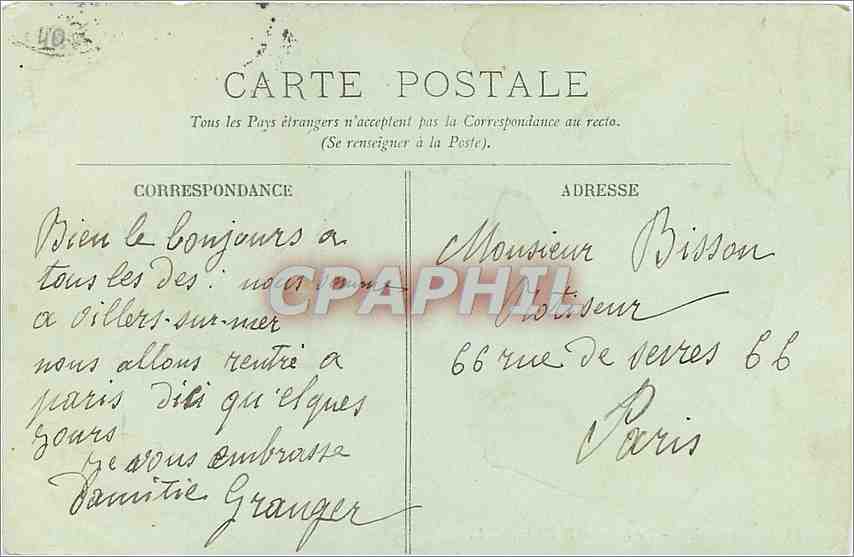 40
CARTE POSTALE
Tous les Pays étrangers n'acceptent pas la Correspondance au recto.
(Se renseigner à la Poste).
CORRESPONDANCE
Bien le bonjours a
tous les des: nous somme
a villers-sur-mer
nous allons rentré a
paris dici qu'elques
jours
je vous embrasse
Damitie Granger
ADRESSE
Monsieur Bisson
Rotiseur
66 rue de sevres 66
Paris
CPAPHIL